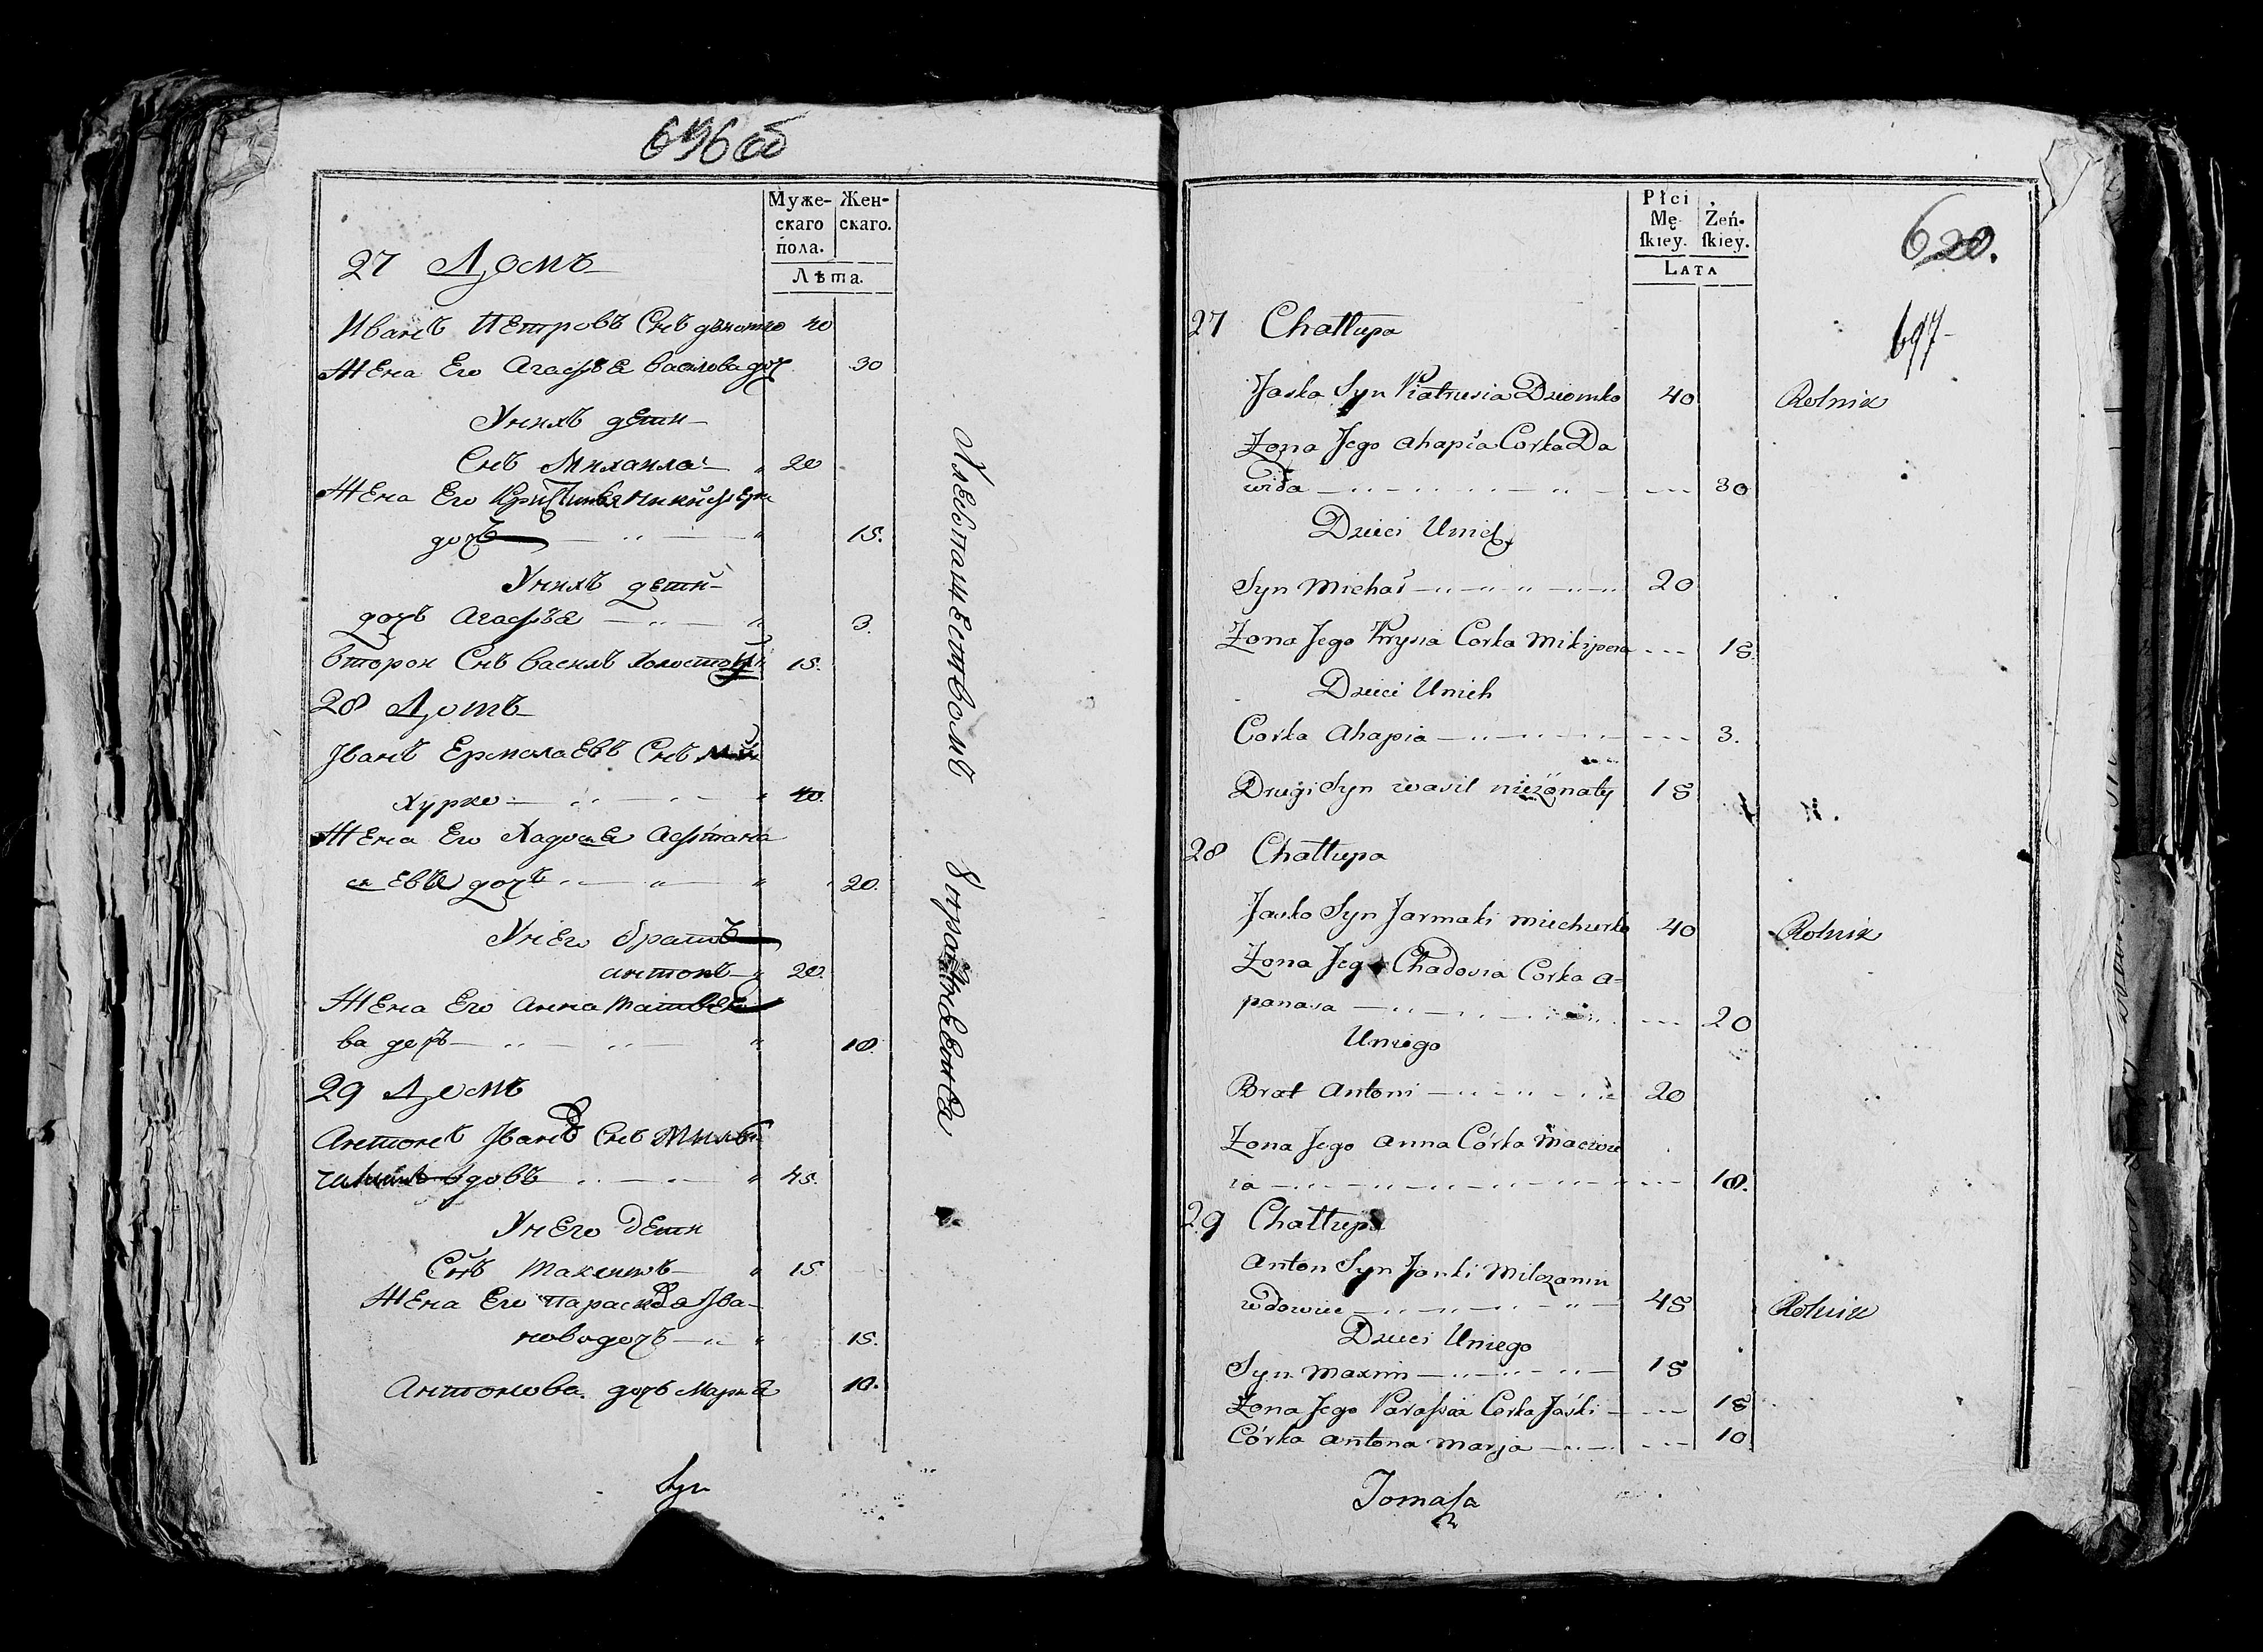 696 об
Муже- Жен-
скаго скаго.
пола.
Лѣта.
27 Домъ
Иванъ Петровъ Снъ 40
Жена Его Агафья василова доч 30
Унихъ дети
Снъ Михаила 20
Жена Его
дочъ 15.
Унихъ дети
дочъ Агафья 3.
второи Снъ василъ холостой 15.
28 Домъ
Іванъ Ермолаевъ Снъ Мѣ
хурко 40.
Жена Его Хадося Афтана
сѣевъ дочъ 20.
Унего братъ
антонъ 20.
Жена Его Анна Матвее
ва дочъ 18.
29 Домъ
Антонъ Іванъ Снъ
вдовъ 45.
Унего дети
Снъ Максимъ 15
Жена Его Параскева Іва-
нова дочъ 15.
Антонова дочъ Мария 10.
Syn
Хлебопашествомъ
Płci
Mę- Żeń-
ſkiey. ſkiey.
LATA
620.
697
27 Chałłupa
Jaśka Syn Piatrusia Dziomko 40 Rolnik
Zona Jego Ahapia Corka Da
wida 30
Dzieci Unich
Syn Michał 20
Zona Jego Krysia Corka Mikipera 15.
Dzieci Unich
Corka Ahapia 3.
Drugi Syn wasil nieżonaty 15
28 Chałłupa
Jaśko Syn Jarmaki Miechurko 40 Rolnik
Zona Jego Chadosia Córka A=
panasa 20
Uniego
Brat Antoni 20
Zona Jego Anna Córka Maciwie
ia 18.
29 Chałłupa
Anton Syn Janki Milczanin
wdowiec 45 Rolnik
Dzieci Uniego
Syn Maxim 15
Zona Jego Paraſia Corka Jaśki 15
Córka Antona Marja 10.
Tomaſza